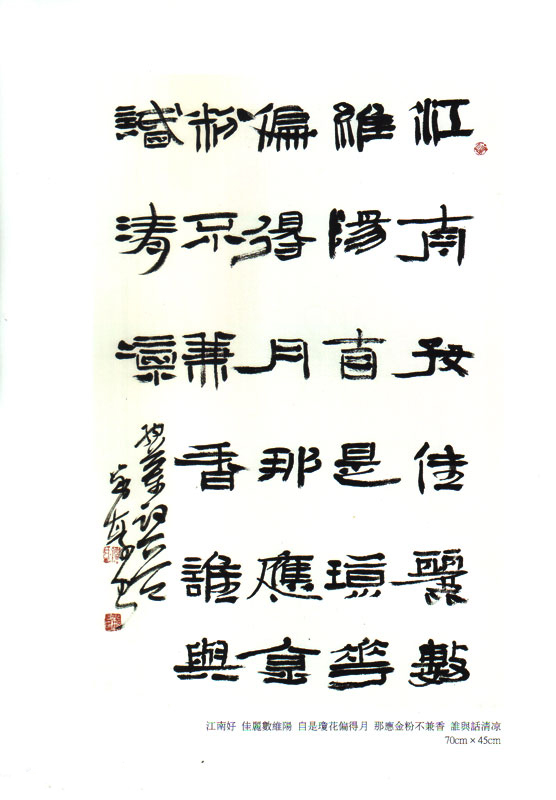 江南好佳麗數
維陽自是瓊花
偏得月那應金
粉不兼香誰與
話清凉
江南好 佳麗數維陽 自是瓊花偏得月 那應金粉不兼香 誰與話清凉
70cm × 45cm